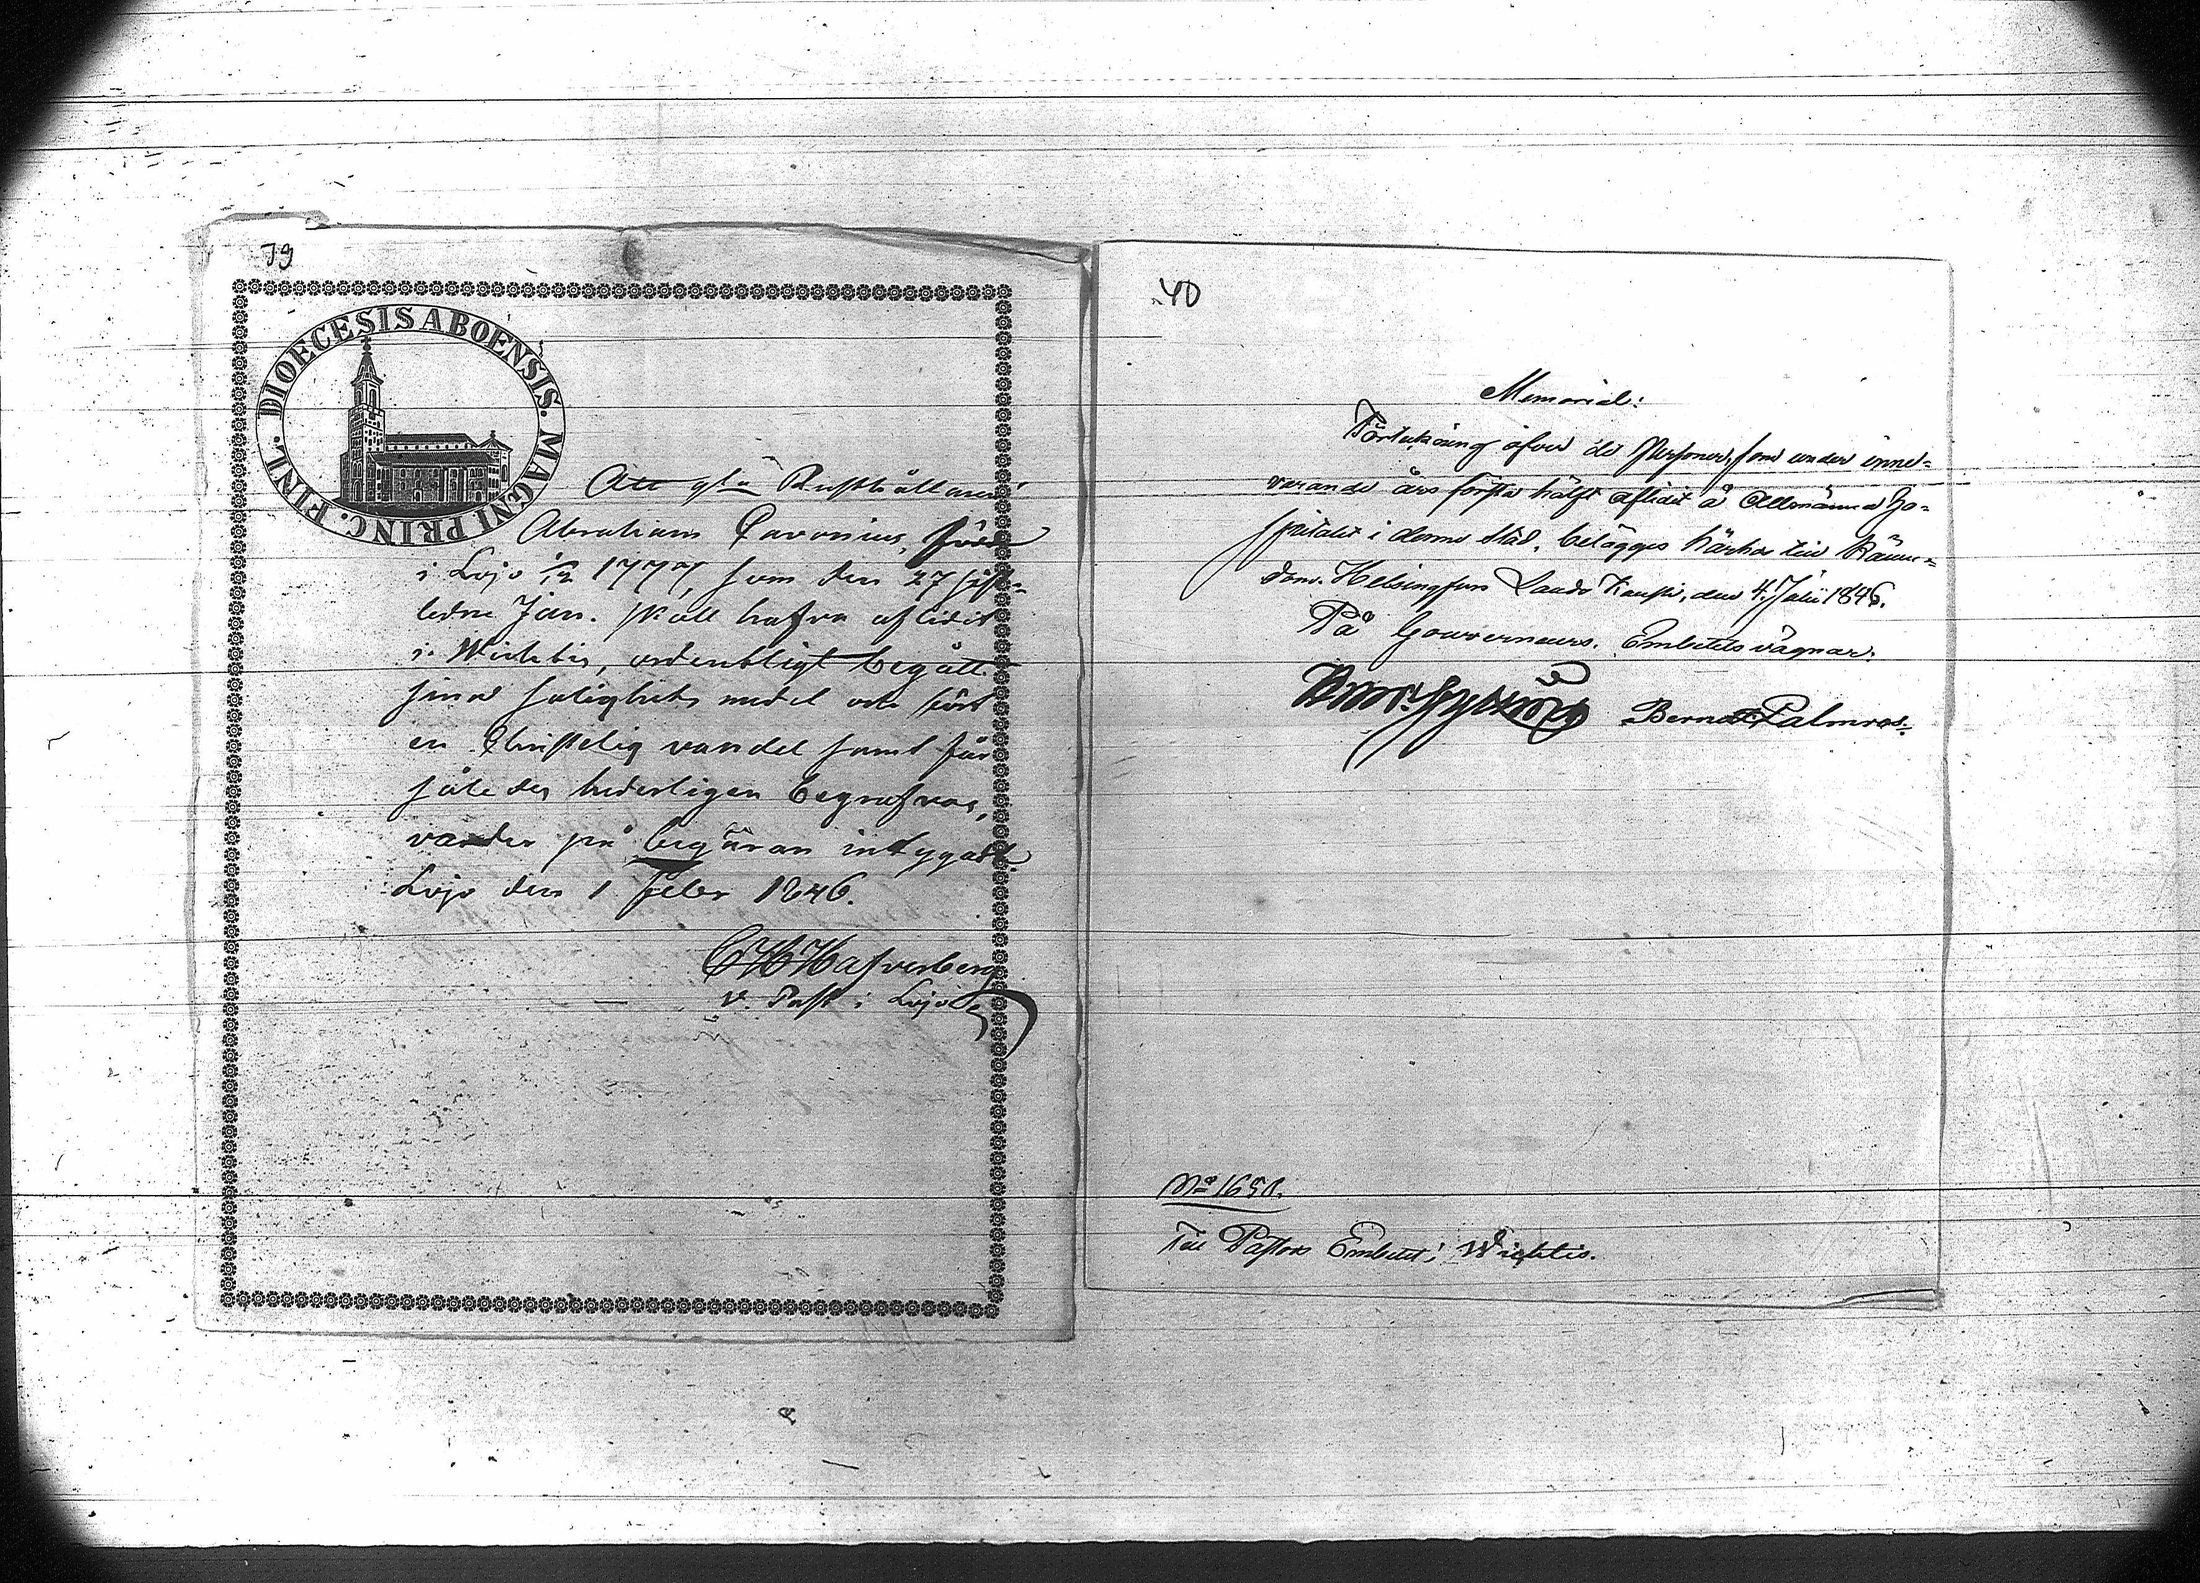 39
DIOECESIS ABOENSIS. MAGNI PRINC. FINL.
Att gla Rusthållaren
Abraham Pavonius, född
i Lojo 1/12 1777, som den 27 sist-
ledne Jan. skall hafva aflidit
i Wichtis, ordentligt begått
sina salighets medel och fört
en Christelig vandel samt för
dess hederligen begrafvas,
varder på begäran intygadt.
Lojo den 1 Febr 1846.
CH Hafverberg
v. Past. i Lojo
40
Memorial:
Förteckning öfver de Personer, som under inne-
varande års första hälft aflidit å Allmänna Ho-
spitalet i denna Stad, belägges härhos till känne-
dom. Helsingfors Lands Kansli, den 4 Julii 1846.
På Gouverneurs Embetets vägnar:
Palmros.
No 1651.
Till Pastors Embetet i Wichtis.